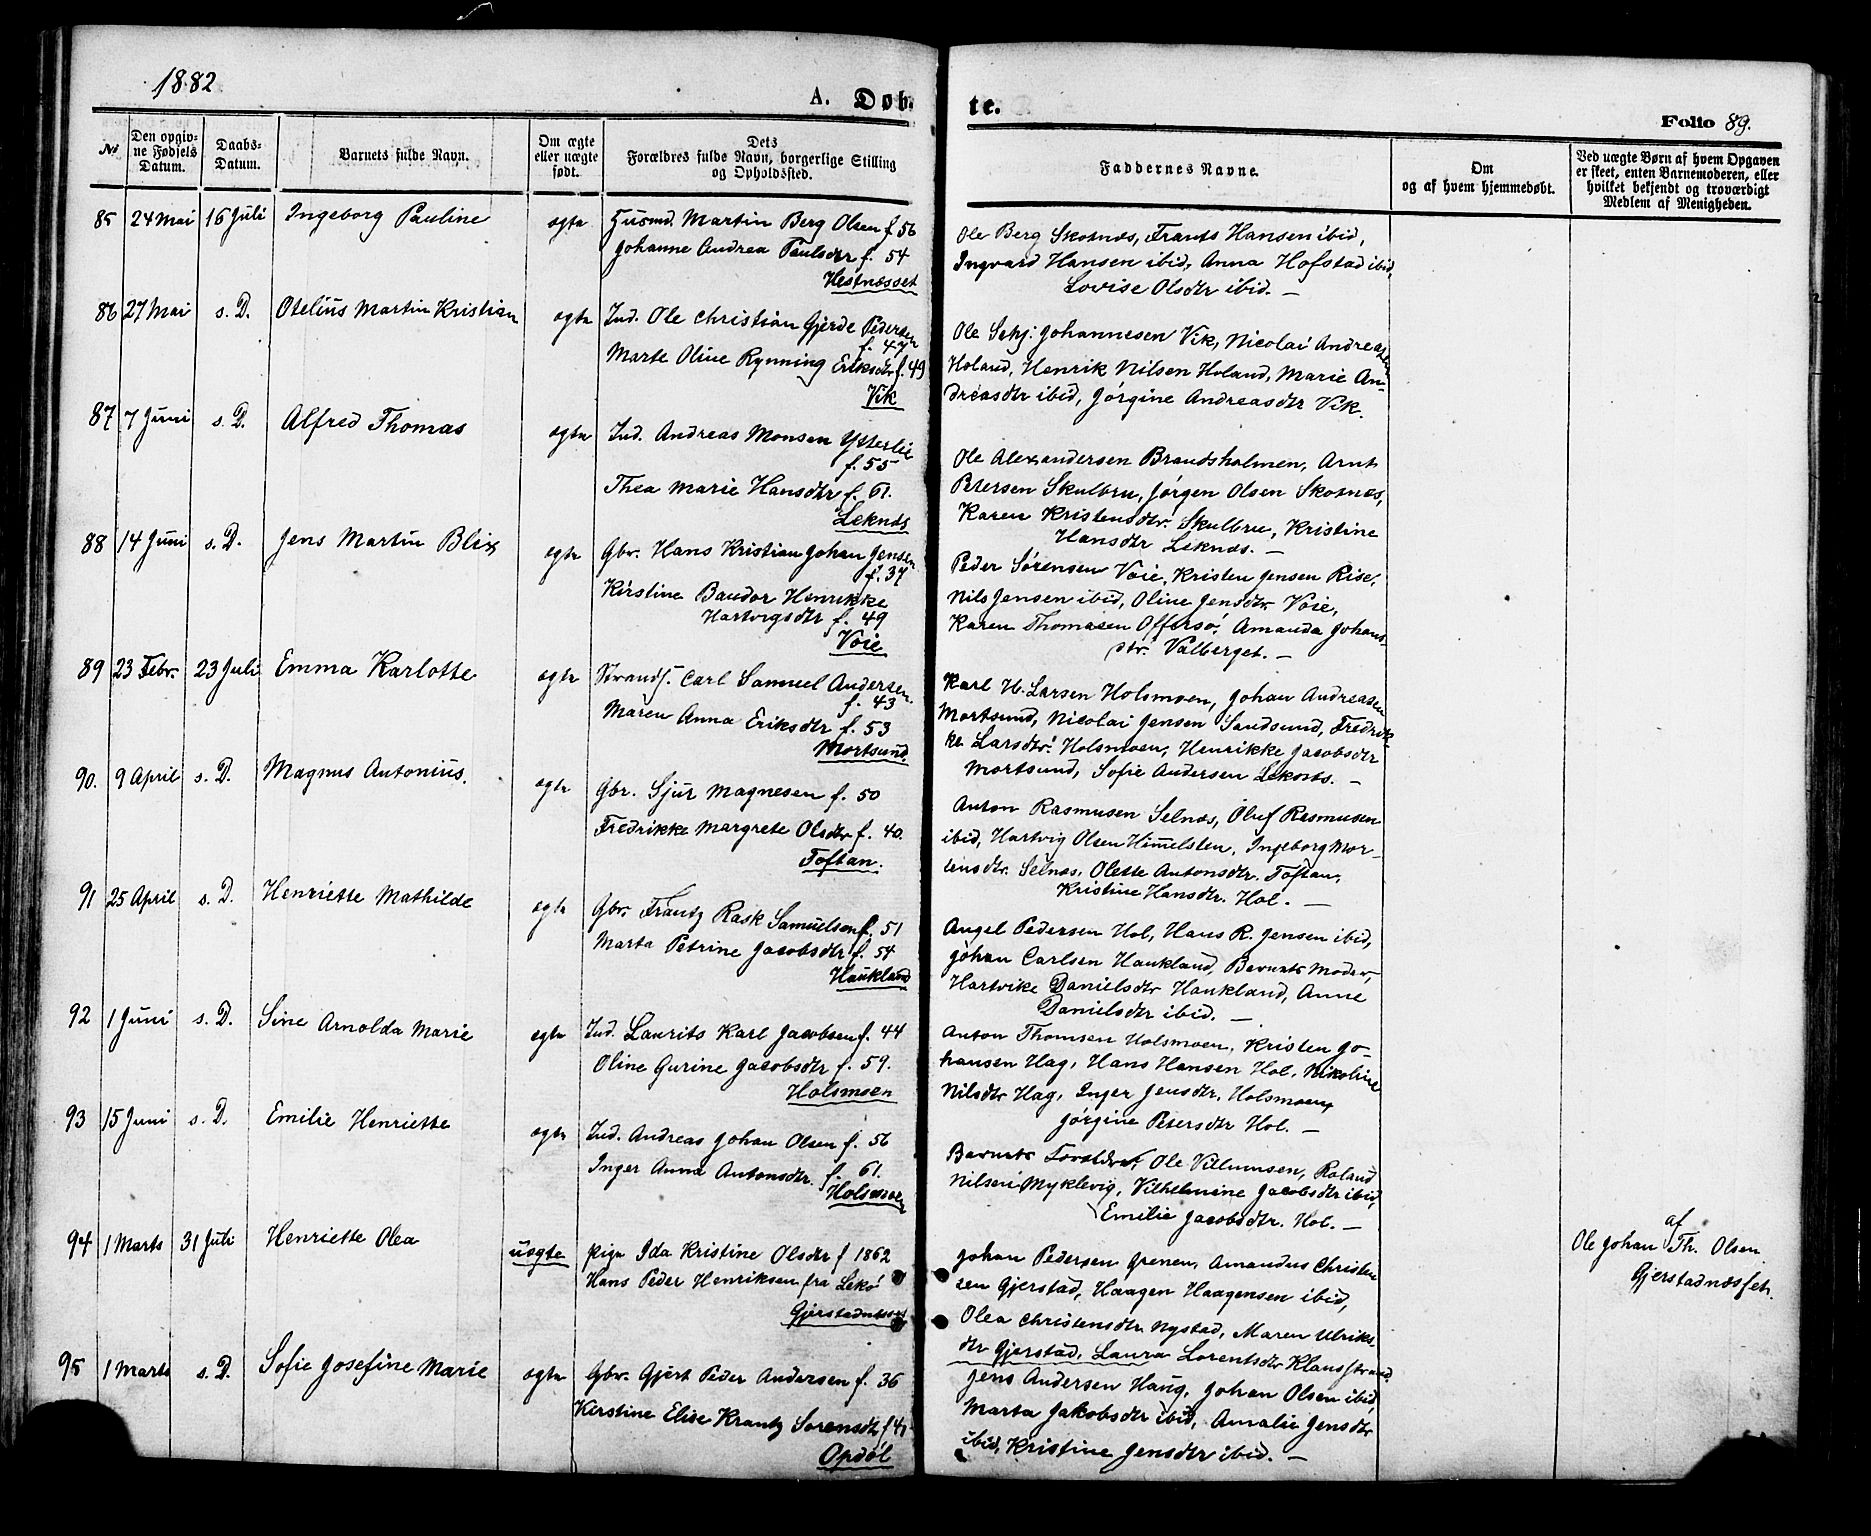 1882
A. Døb-
te.
Folio 89.
No
Den opgiv-
ne Fødsels
Datum.
Daabs-
Datum.
Barnets fulde Navn.
Om ægte
eller uægte
født.
Dets
Forældres fulde Navn, borgerlige Stilling
og Opholdssted.
Faddernes Navne.
Om
og af hvem hjemmedøbt.
Ved uægte Børn af hvem Opgaven
er skeet, enten Barnemoderen, eller
hvilket bekjendt og troværdigt
Medlem af Menigheden.
85 24 Mai 16 Juli Ingeborg Pauline ægte Husmd. Martin Berg Olsen f. 56
Johanne Andrea Paulsdtr f. 54
Hestnæsset
Ole Berg Skotnæs, Frants Hansen ibid,
Ingvard Hansen ibid, Anna Hofstad ibid,
Lovise Olsdtr ibid. —
86 27 Mai s. D. Otelius Martin Kristian ægte Ind. Ole Christian Gjerde Pedersen
f. 47
Marte Oline Rynning Eriksdtr f. 49
Vik
Ole Johannesen Vik, Nicolai Andreasen
Holand, Henrik Nilsen Holand, Marie An-
dreasdtr ibid, Jørgine Andreasdtr Vik.
87 7 Juni s. D. Alfred Thomas ægte Ind. Andreas Monsen Ytterlie
f. 55
Thea Marie Hansdtr f. 61.
Leknæs
Ole Alexandersen Brandsholmen, Arnt
Petersen Skulbru, Jørgen Olsen Skotnæs,
Karen Kristensdtr. Skulbru, Kristine
Hansdtr Leknæs. —
88 14 Juni s. D. Jens Martin Blix ægte Gbr. Hans Kristian Johan Jensen
f. 37
Kirstine Baudor Henrikke
Hartvigsdtr f. 49
Voie
Peder Sørensen Voie, Kristen Jensen Rise,
Nils Jensen ibid, Oline Jensdtr Voie,
Karen Thomasen Offersø, Amanda Johans-
dtr. Valberget. —
89 23 Febr. 23 Juli Emma Karlotte ægte Strands. Carl Samuel Andersen
f. 43
Maren Anna Eriksdtr f. 53
Mortsund.
Karl H. Larsen Holsmoen, Johan Andreasen
Mortsund, Nicolai Jensen Sandsund, Fredrik-
ke Larsdtr. Holsmoen, Henrikke Jacobsdtr
Mortsund, Sofie Andersen
90. 9 April s. D. Magnus Antonius. ægte Gbr. Sjur Magnesen f. 50
Fredrikke Margrete Olsdtr f. 40.
Toftan.
Anton Rasmusen Selnæs, Oluf Rasmusen
ibid, Hartvig Olsen Himmelsten, Ingeborg Mor-
tensdtr. Selnæs, Olette Antonsdtr. Toftan,
Kristine Hansdtr. Hol. —
91 25 April s. D. Henriette Mathilde ægte Gbr. Frantz Rask Samuelsen f. 51
Marta Petrine Jacobsdtr f. 54
Haukland
Angel Pedersen Hol, Hans R. Jensen ibid,
Johan Carlsen Haukland, Barnets Moder,
Hartvike Danielsdtr Haukland, Anne
Danielsdtr ibid. —
92 1 Juni s. D. Sine Arnolda Marie ægte Ind. Laurits Karl Jacobsen f. 44
Oline Gurine Jacobsdtr f. 59.
Holsmoen
Anton Thomsen Holsmoen, Kristen Jo-
hansen Hag, Hans Hansen Hol, Nikoline
Nilsdtr Hag, Inger Jensdtr. Holsmoen,
Jørgine Petersdtr Hol. —
93 15 Juni s. D. Emilie Henriette ægte Ind. Andreas Johan Olsen f. 56
Inger Anna Antonsdtr. f. 61.
Holsmoen
Barnets Forældre, Ole Villumsen, Roland
Nilsen Myklevig, Vilhelmine Jacobsdtr ibid,
Emilie Jacobsdtr. Hol. —
94 1 Marts 31 Juli Henriette Olea uægte pige Ida Kristine Olsdtr f 1862
Hans Peder Henriksen fra Lekø
Gjerstadnæsset
Johan Pedersen Grenen, Amandus Christen-
sen Gjerstad, Haagen Haagensen ibid,
Olea Christensdtr Nystad, Maren Ulriks-
dtr Gjerstad, Laura Lorentsdtr Klausstrand.
af
Ole Johan Th. Olsen
Gjerstadnæsset.
95 1 Marts s. D. Sofie Josefine Marie ægte Gbr. Gjert Peder Andersen f. 36
Kirstine Elise Krantz Sorensdtr f 41
Opdøl
Jens Andersen Haug, Johan Olsen ibid,
Marta Jakobsdtr ibid, Amalie Jensdtr
ibid, Kristine Jensdtr ibid. —